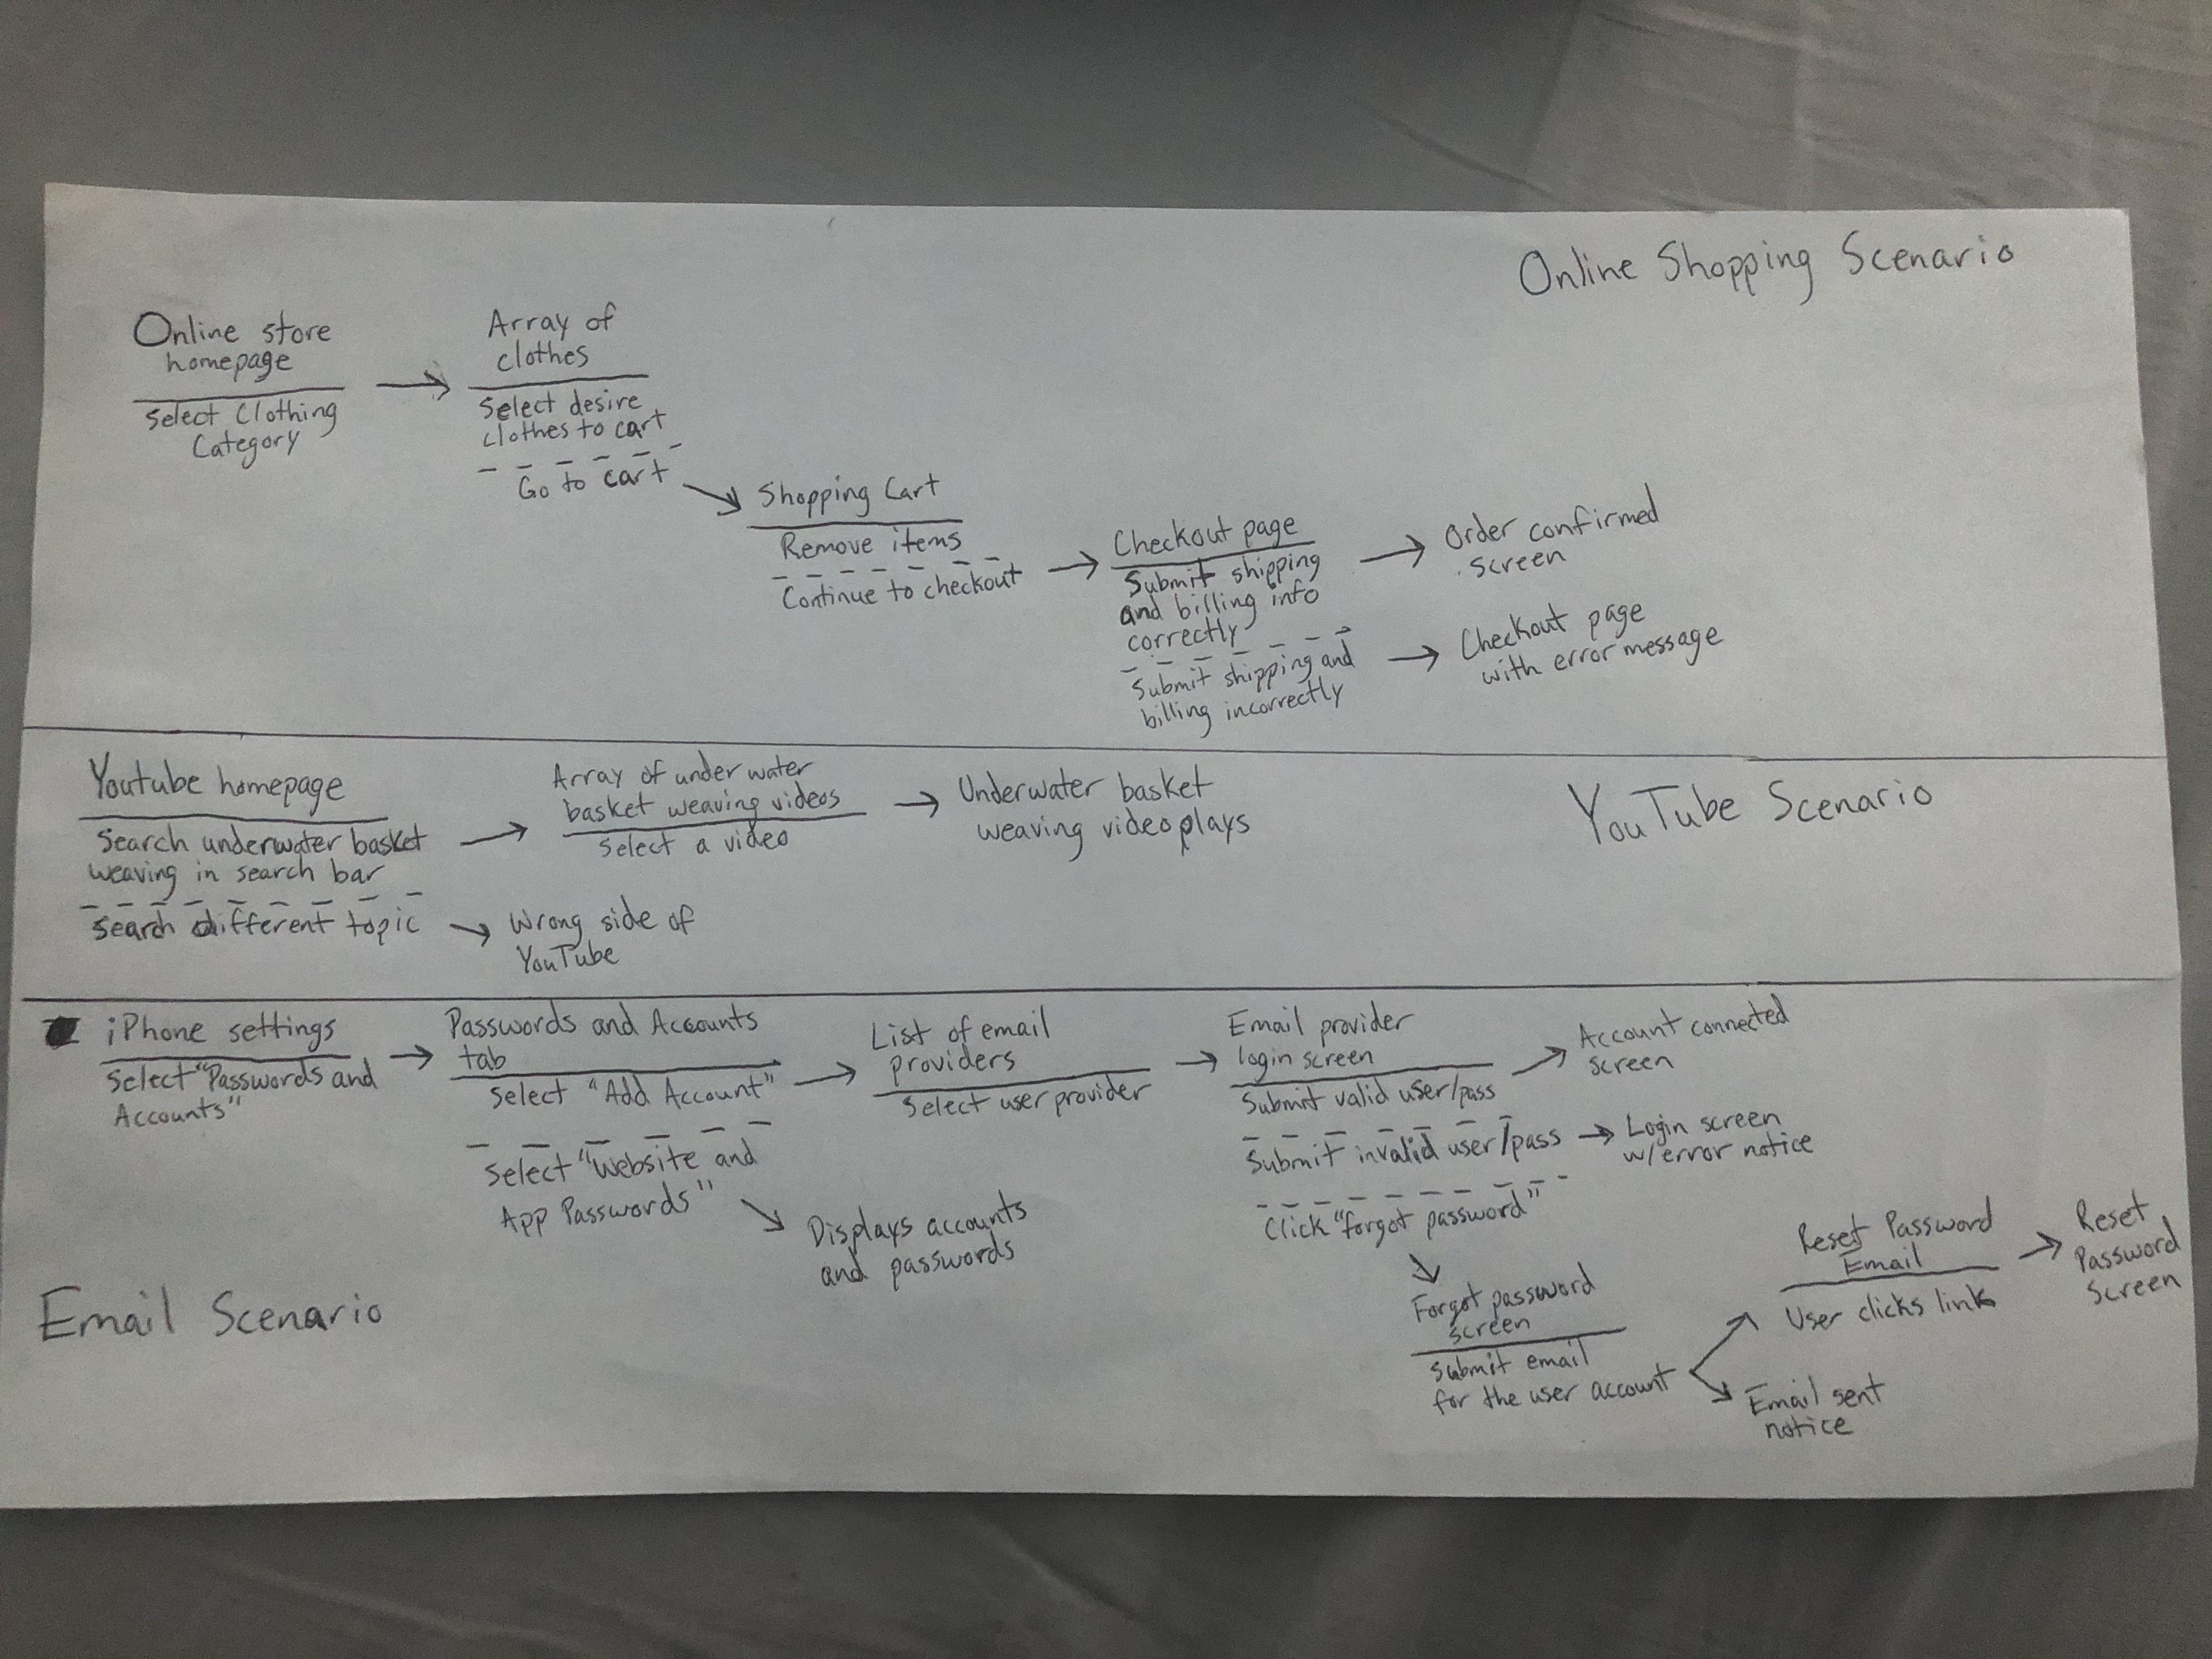 Online Shopping Scenario
Online store
homepage
Select Clothing
Category
Array of
clothes
Select desire
clothes to cart
Go to cart
Shopping Cart
Remove items
Continue to checkout
Checkout page
Submit shipping
and billing info
correctly
Submit shipping and
billing incorrectly
Order confirmed
screen
Checkout page
with error message
YouTube Scenario
Youtube homepage
Search underwater basket
weaving in search bar
Search different topic
Array of underwater
basket weaving videos
Select a video
Wrong side of
YouTube
Underwater basket
weaving video plays
Email Scenario
iPhone settings
Select "Passwords and
Accounts"
Passwords and Accounts
tab
Select "Add Account"
Select "Website and
App Passwords"
Displays accounts
and passwords
List of email
providers
Select user provider
Email provider
login screen
Submit valid user/pass
Submit invalid user/pass
Click "forgot password"
Account connected
screen
Login screen
w/error notice
Forgot password
screen
Submit email
for the user account
Email sent
notice
Reset Password
Email
User clicks link
Reset
Password
Screen